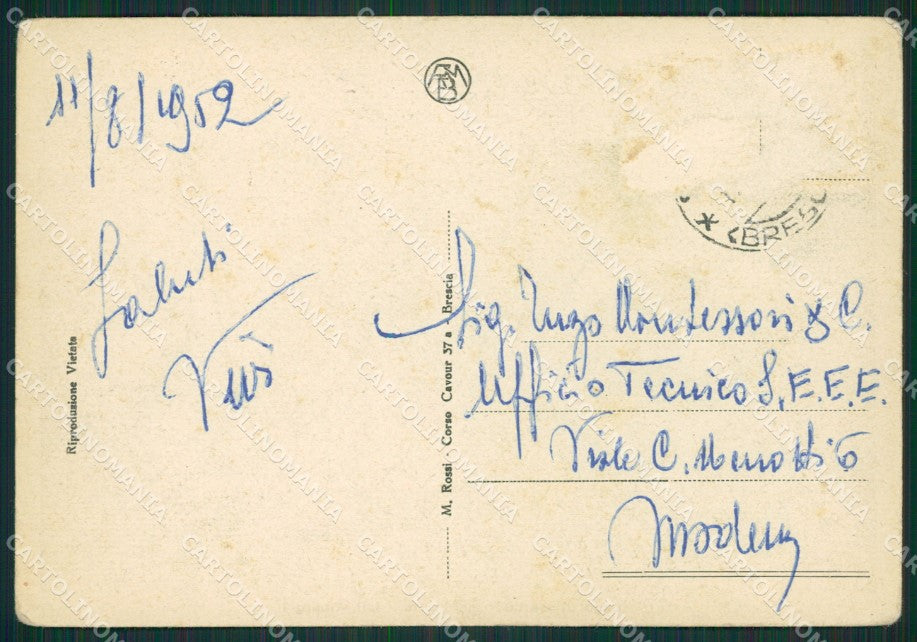 11/8/1952
Saluti
Riproduzione Vietata
M. Rossi - Corso Cavour 37 a - Brescia
BMR
* (BRESC
Sig. Enzo Montessori & C.
Ufficio Tecnico S.E.E.E.
Viale C. Menotti 6
Modena
CARTOLINOMANIA